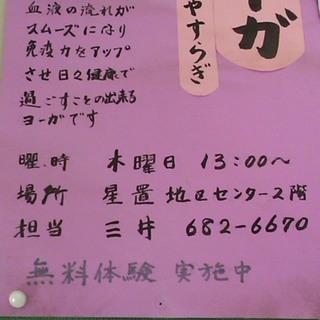 ーガ
やすらぎ
血液の流れが
スムーズになり
免疫力をアップ
させ日々健康で
過ごすことの出来る
ヨーガです
曜.時 木曜日 13:00～
場所 星置地区センター2階
担当 三井 682-6670
無料体験実施中